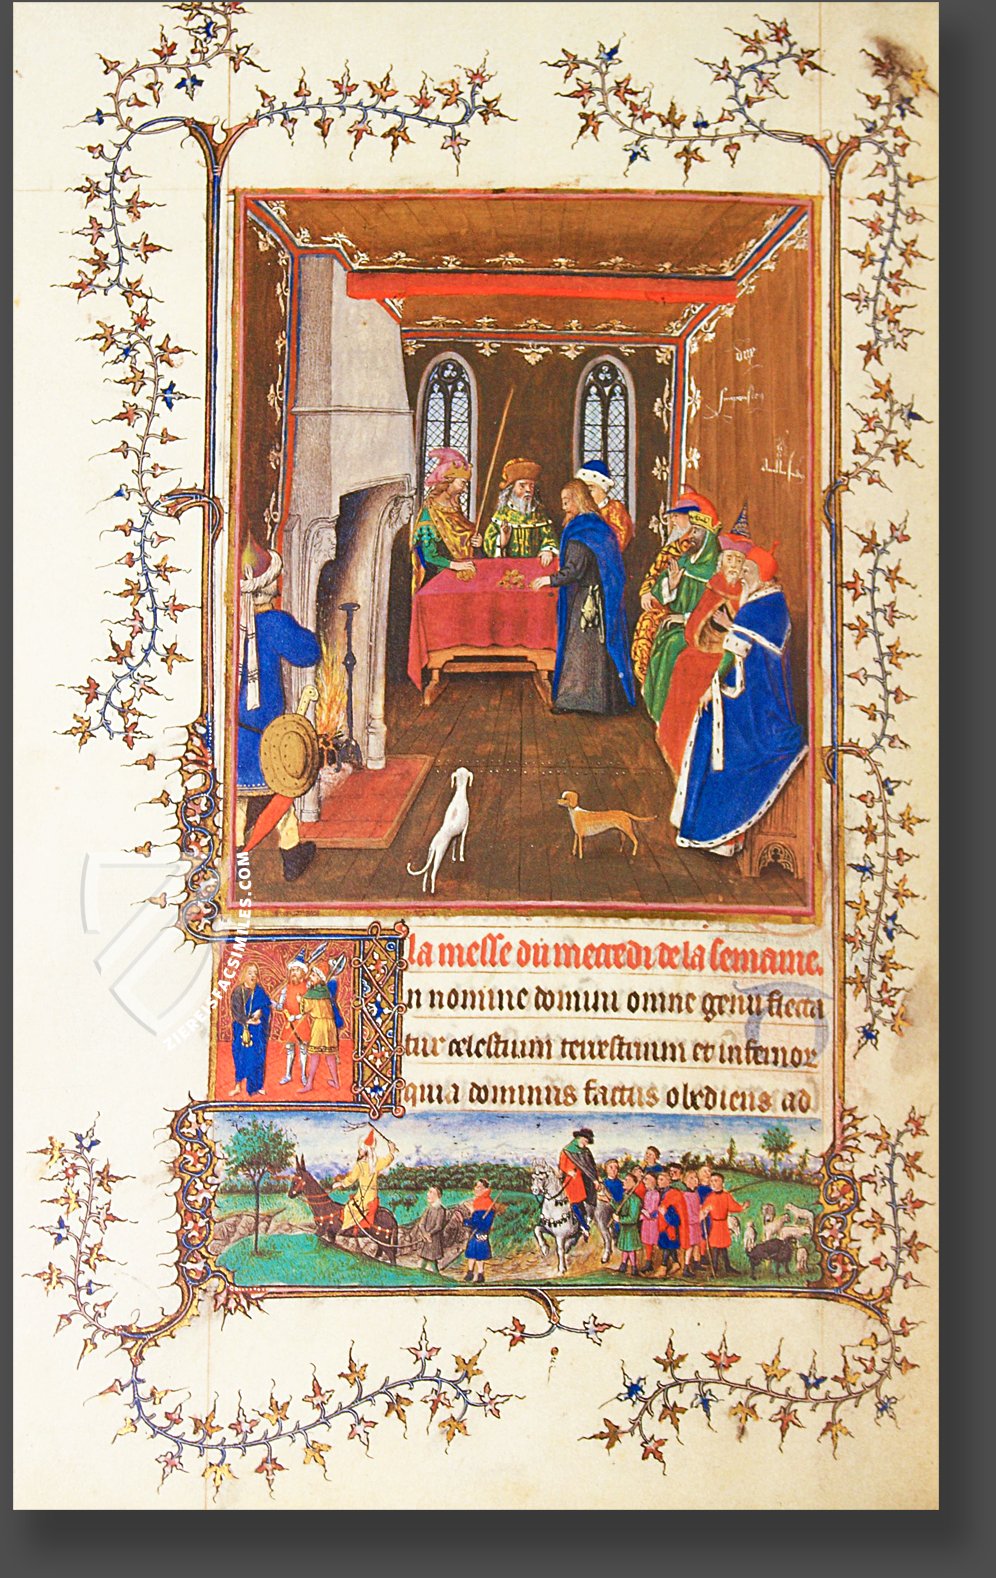 la messe du mecredi de la semaine.
n nomine domini omne genu flecta
tur celestium terrestrium et infernor
quia dominus factus obediens ad
ZIEREIS FACSIMILES.COM